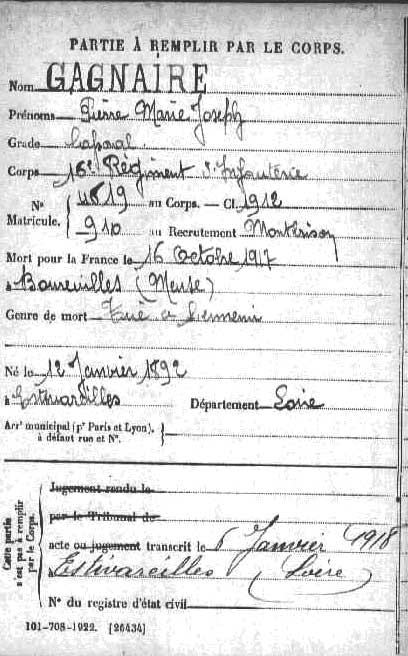 PARTIE À REMPLIR PAR LE CORPS.
Nom GAGNAIRE
Prénoms Pierre Marie Joseph
Grade Caporal
Corps 16e Régiment d'Infanterie
N° Matricule. { 4819 au Corps. — Cl. 1912
910 au Recrutement Montbrison
Mort pour la France le 16 Octobre 1917
à Boureuilles (Meuse)
Genre de mort Tué à l'ennemi
Né le 12 Janvier 1892
à Estivareilles Département Loire
Arrt municipal (pr Paris et Lyon), à défaut rue et N°. }
Cette partie n'est pas à remplir par le Corps.
Jugement rendu le
par le Tribunal de
acte ou jugement transcrit le 6 Janvier 1918
Estivareilles (Loire)
N° du registre d'état civil
101-708-1922. [26434]